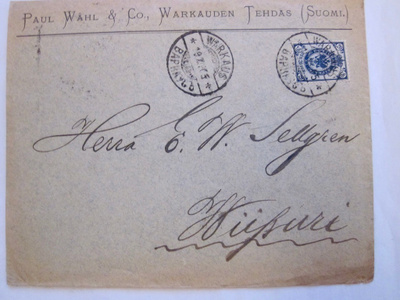 PAUL WAHL & CO., WARKAUDEN TEHDAS (SUOMI.)
WARKAUS
WARKAUS
Herra E. W. Sellgren
Wiipuri